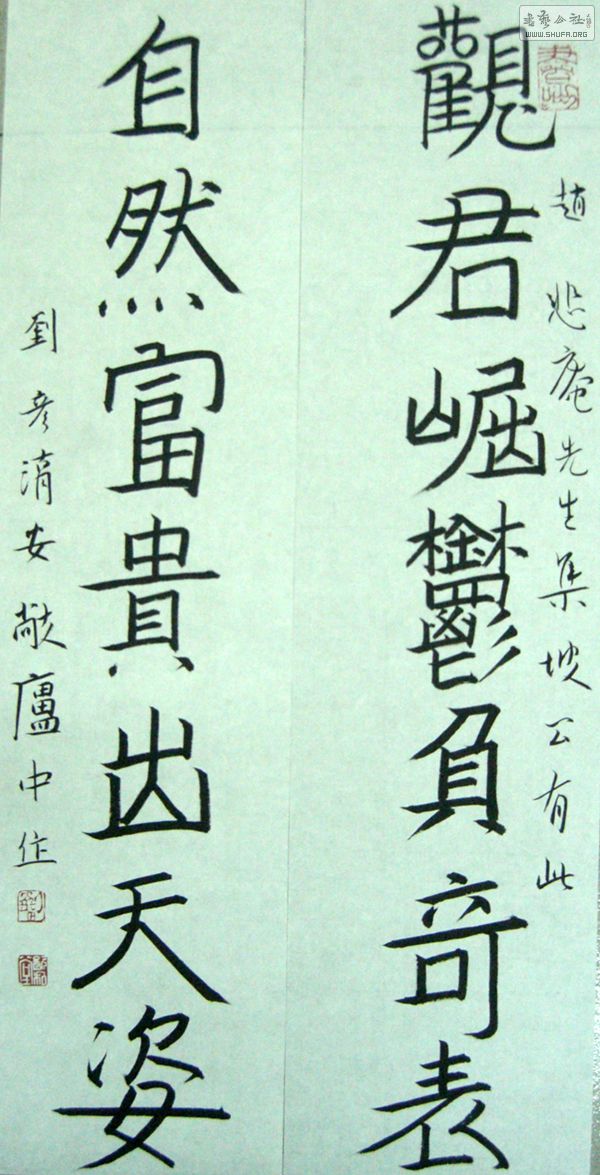 趙悲庵先生集坡公有此
觀君崛鬱負奇表
自然富貴出天姿
劉彥湇安敞廬中作
WWW.SHUFA.ORG